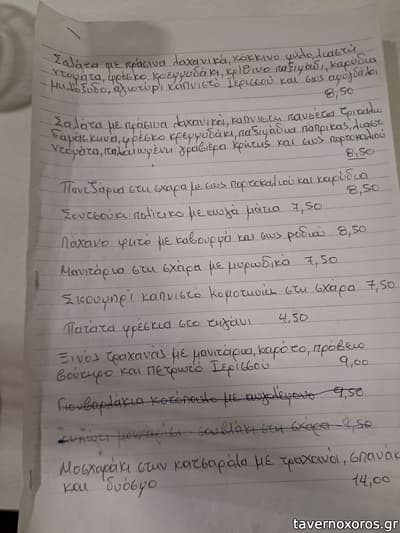 Σαλάτα με πράσινα λαχανικά, κόκκινο μήλο, λιαστή
ντομάτα, φρέσκο κρεμμυδάκι, κρίθινο παξιμάδι, καρύδια
μυλόξυδο, αλιοτύρι καπνιστό Ιερισσού και σως
8,50
Σαλάτα με πράσινα λαχανικά, καπνιστή πανσέτα Τρικάλων
δαμάσκηνα, φρέσκο κρεμμυδάκι, παξιμάδια πάπρικας, λιαστή
ντομάτα, παλαιωμένη γραβιέρα Κρήτης και σως πορτοκαλιού
8,50
Παντζάρια στη σχάρα με σως πορτοκαλιού και καρύδια
8,50
Σουτσούκι πολίτικο με αυγά μάτια 7,50
Λάχανο ψητό με καβουρμά και σως ροδιού 8,50
Μανιτάρια στη σχάρα με μυρωδικά 7,50
Σκουμπρί καπνιστό Κομοτηνής στη σχάρα 7,50
Πατάτα φρέσκια στο τηγάνι 4,50
Ξινός τραχανάς με μανιτάρια, καρότο, πρόβειο
βούτυρο και πετρωτό Ιερισσού 9,00
Γιουβαρλάκια κοτόπουλο με αυγολέμονο 9,50
σουβλάκι στη σχάρα 9,50
Μοσχαράκι στην κατσαρόλα με τραχανά, σπανάκ
και δυόσμο 14,00
tavernoxoros.gr